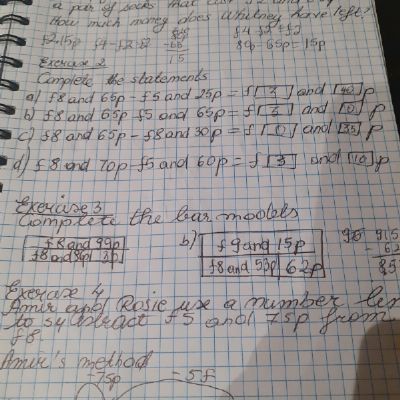 a pair of socks that cost £2 and
How much money does Whitney have left?
£2-15p £4-£2=£2 £4-£2=£2
80p-65p=15p
Exercise 2
Complete the statements
a) £8 and 65p - £5 and 25p = £ 3 and 40 p
b) £8 and 65p £5 and 65p = £ 3 and 0 p
c) £8 and 65p - £8 and 30p = £ 0 and 35 p
d) £8 and 70p - £5 and 60p = £ 3 and 10 p
Exercise 3
Complete the bar models
£8 and 99p
£8 and 3p
b) £9 and 15p
£8 and 53p 62p
915
- 62
Exercise 4
Amir and Rosie use a number line
to subtract £5 and 75p from
£8.
Amir's method
-75p -5£